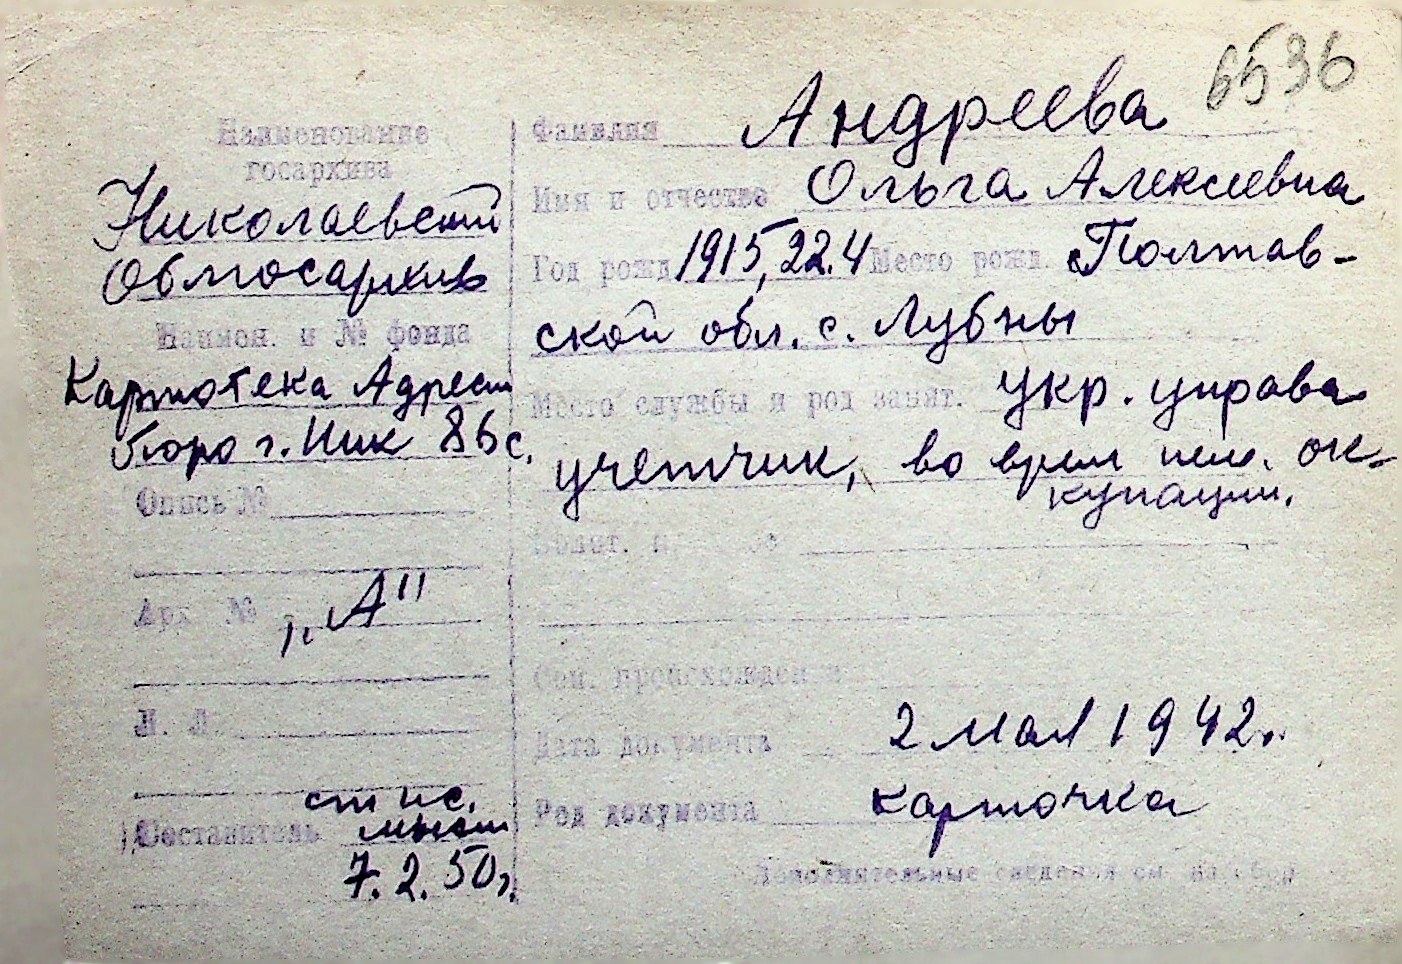 6536
Наименование
госархива
Николаевский
Облгосархив
Наимен. и № фонда
Картотека Адресн
бюро г. Ник 86 с.
Опись №
Арх №
„А"
Л. Л.
Составитель ст нс.
7.2.50г.
Фамилия Андреева
Имя и отчество Ольга Алексеевна
Год рожд 1915, 22.4 Место рожд. Полтав-
ской обл. с. Лубны
Место службы и род занят. Укр. управа
учетчик, во врем нем. ок-
купации.
Соц. происхожден и
Дата документа 2 мая 1942г.
Род документа карточка
Дополнительные сведения см на обор